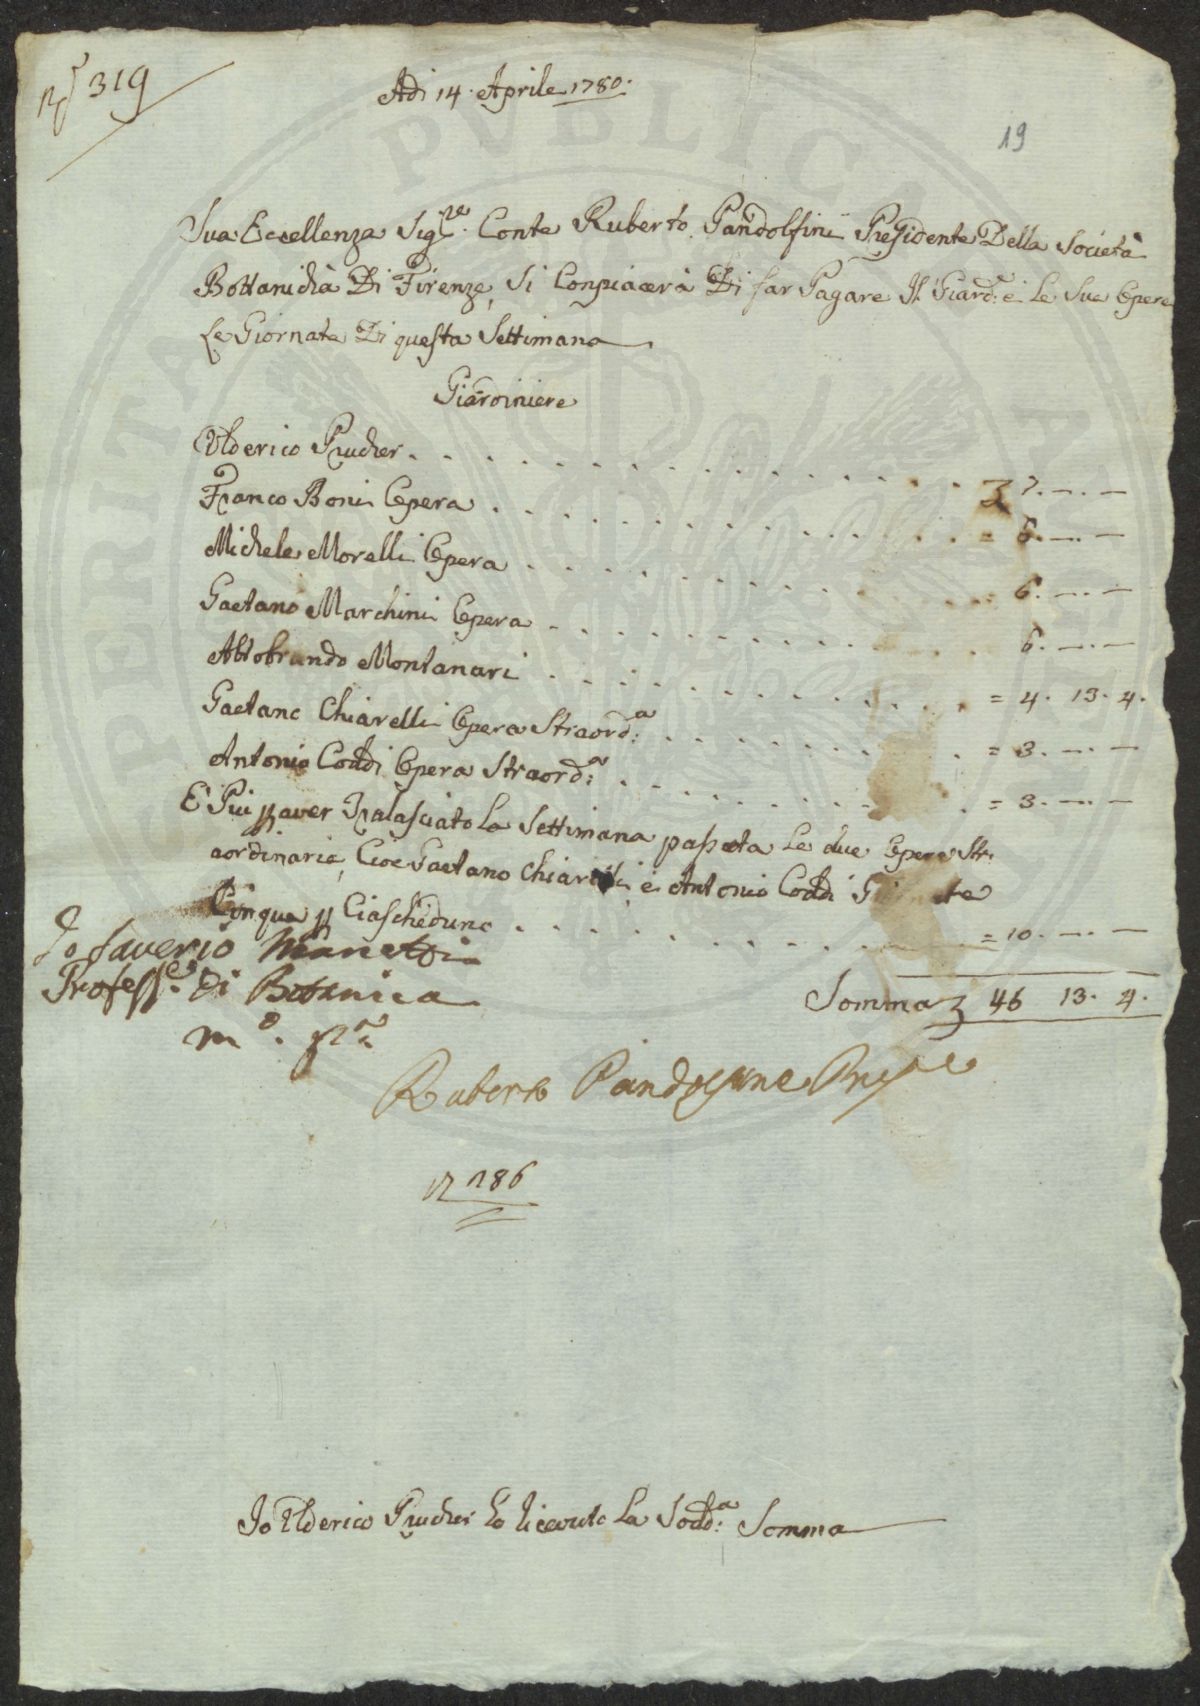 N 319
Adi 14. Aprile 1780.
19
Sua Eccellenza Sig.re Conte Ruberto Pandolfini Presidente Della Società
Bottanicha Di Firenze, Si Conpiacerà Di far Pagare Il Giard.e e Le Sue Opere
Le Giornate Di questa Settimana
Giardiniere
Ulderico Prucher 7. —. —
Franco Boni Opera = 6. —. —
Michele Morelli Opera = 6. —. —
Gaetano Marchini Opera 6. —. —
Montanari = 4. 13. 4.
Gaetano Chiarelli Opera Straord.a = 3. —. —
Antonio Coddi Opera Straord.a = 3. —. —
E Più p aver Tralasciato La Settimana passata Le due Opere Str:
aordinarie, Cioè Gaetano Chiarelli e Antonio Coddi Giornate
Cinque p Ciascheduno = 10. —. —
Somma 46 13. 4.
Io Saverio Manetti
Profess.e di Botanica
m.o p.a
Ruberto Pandolfini Pres.e
N 186
Io Ulderico Prucher ho riceuto La Sodd.a Somma
PUBLICAE